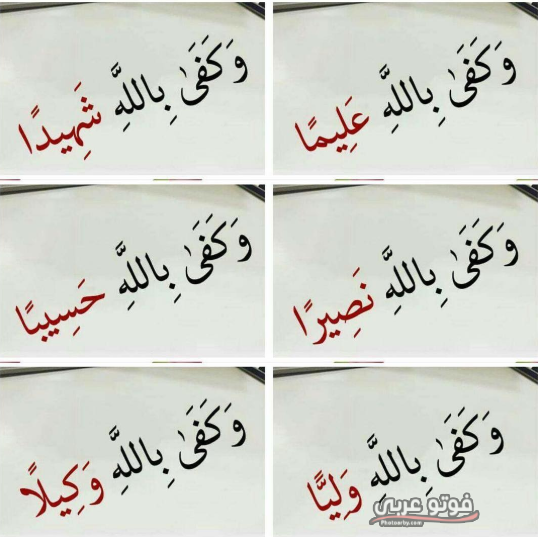 وَكَفَىٰ بِاللَّهِ عَلِيمًا
وَكَفَىٰ بِاللَّهِ شَهِيدًا
وَكَفَىٰ بِاللَّهِ نَصِيرًا
وَكَفَىٰ بِاللَّهِ حَسِيبًا
وَكَفَىٰ بِاللَّهِ وَلِيًّا
وَكَفَىٰ بِاللَّهِ وَكِيلًا
فوتو عربي
Photoarby.com